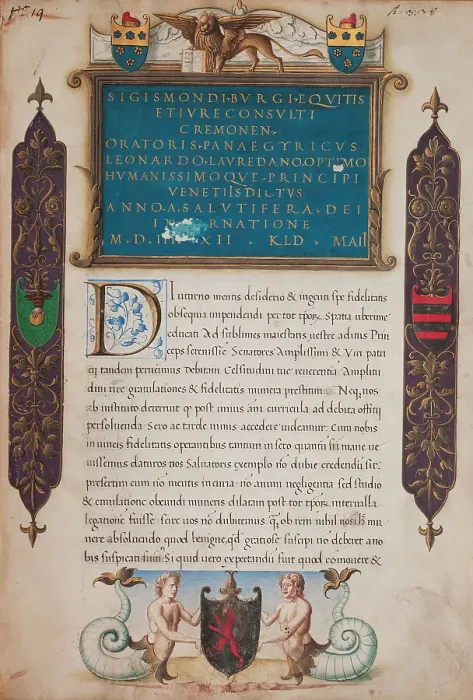 SIGISMONDI·BVRGI·EQVITIS
ET IVRECONSVLTI
CREMONEN,
ORATORIS·PANAEGYRICVS
LEONARDO·LAVREDANO·OPTIMO
HVMANISSIMOQVE·PRINCIPI
VENETIIS DICTVS
ANNO·A·SALVTIFERA·DEI
RNATIONE
M·D·XII·KLD·MAII
DIuturno mentis desiderio & ingenti spe fidelitatis
obsequia impendendi per tot tpoȝ Spatia uberime
educati Ad sublimes maiestatis uestre aditus Prin
ceps serenissime Senatores Amplissimi & Viri patri
cij tandem peruenimus Debitam Celsitudini tue reuerentia Ampliu
dini tire gratulationes & fidelitatis munera prestituri Neq, nos
ab instituto deterruit q post unius ani curricula ad debita officij
persoluenda Sero ac tarde nimis accedere uideamur. Cum nobis
in uineis fidelitatis operantibus tantum in sero quantu si mane ue
nissemus daturos nos Saluatoris exemplo no dubie credendu sit.
presertim cum no mentis incuria no animi negligentia sed studio
& emulatione obeundi muneris dilatam post tot tpoȝ interualla
legatione fuisse scire uos no dubitemus. q, ob rem nihil nobis mu
nere absoluendo quod benigne, qd gratiose suscepi no deberet a uo
bis suspicati sum Si quid uero expectandu fuit quod comouere &